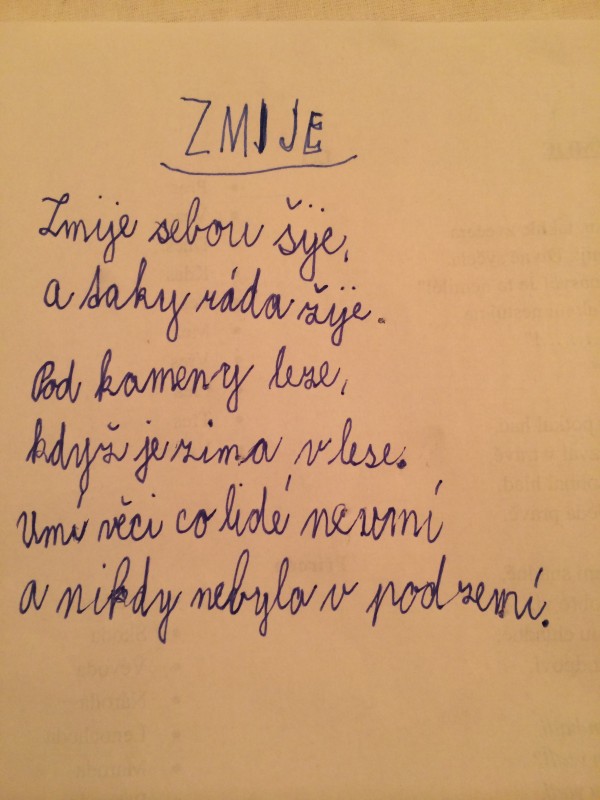 ZMIJE
Zmije sebou šije,
a taky ráda žije.
Pod kameny leze,
když je zima v lese.
Umí věci co lidé neumí
a nikdy nebyla v podzemí.